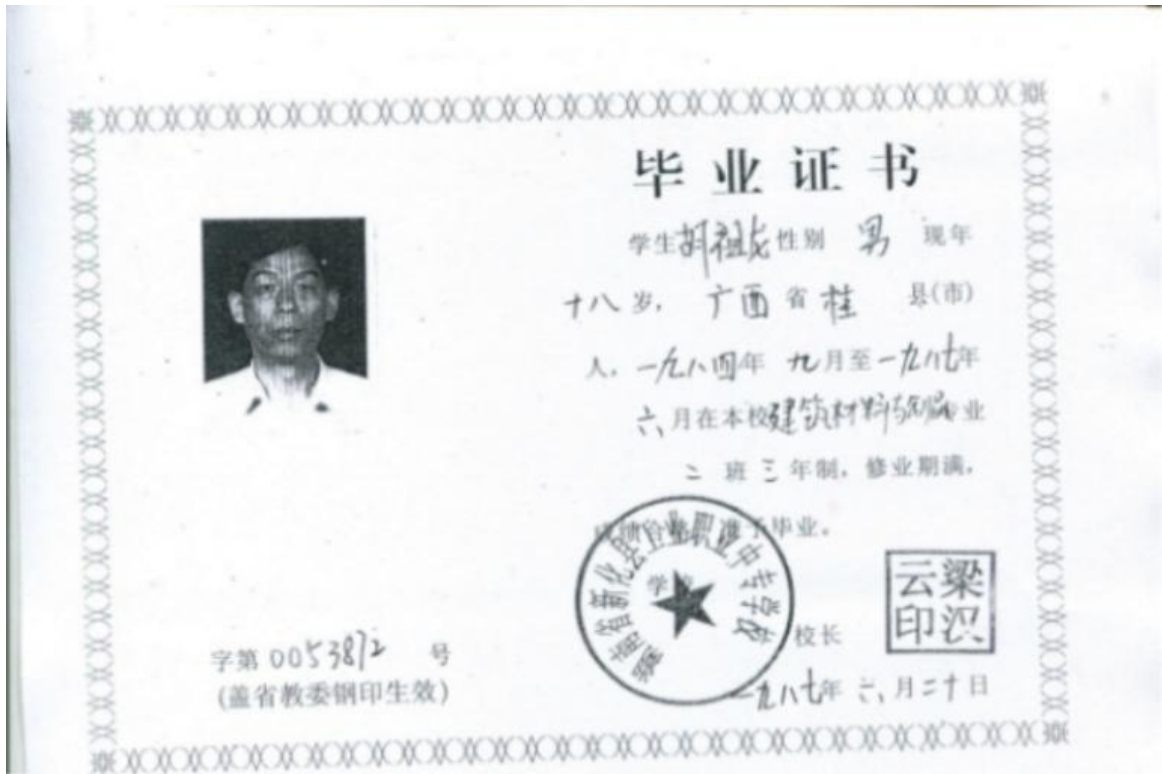 毕业证书
学生胡祖龙性别 男 现年
十八岁，广西省桂 县(市)
人，一九八四年 九月至一九八七年
六月在本校建筑材料与 专业
二 班三年制，修业期满，
成绩合格 准予毕业。
学校
湖南省新化县 业职业中专学校
校长
梁汉云印
一九八七年 六月二十日
字第 0053872 号
(盖省教委钢印生效)